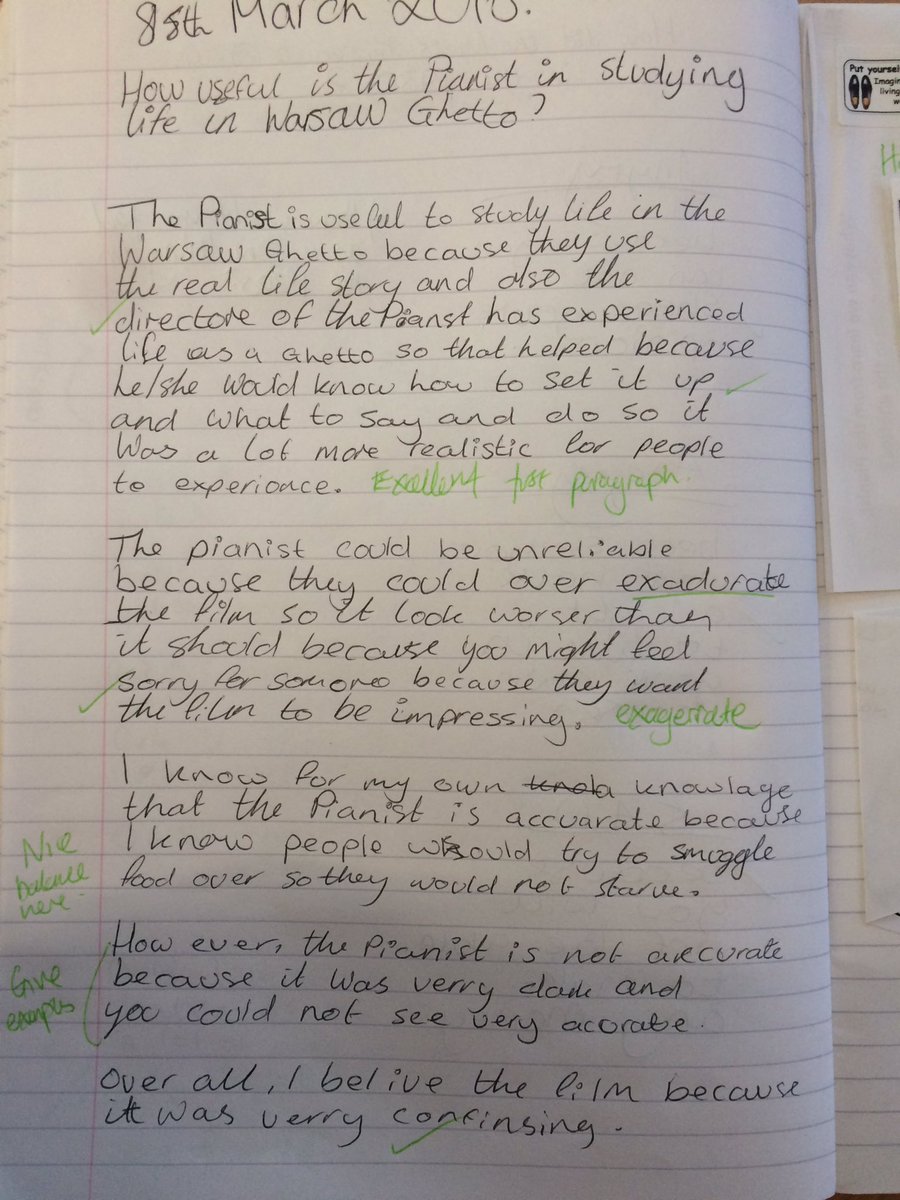 8th March 2018.
How useful is the Pianist in studying
life in Warsaw Ghetto?
Put yoursel
Imagin
living
w
H
The Pianist is useful to study life in the
Warsaw Ghetto because they use
the real life story and also the
directore of the Pianst has experienced
life as a Ghetto so that helped because
he/she would know how to set it up
and what to say and do so it
was a lot more realistic for people
to experionce. Excellent first paragraph.
The pianist could be unreliable
because they could over exadurate
the film so it look worser than
it should because you might feel
sorry for someone because they want
the film to be impressing. exagerrate
I know for my own knowlage
that the Pianist is accuarate because
I know people would try to smuggle
food over so they would not starve.
Nice
balance
here
How ever, the Pianist is not accurate
because it was verry dark and
you could not see very acorate.
Give
examples
Over all, I belive the film because
it was verry confinsing.